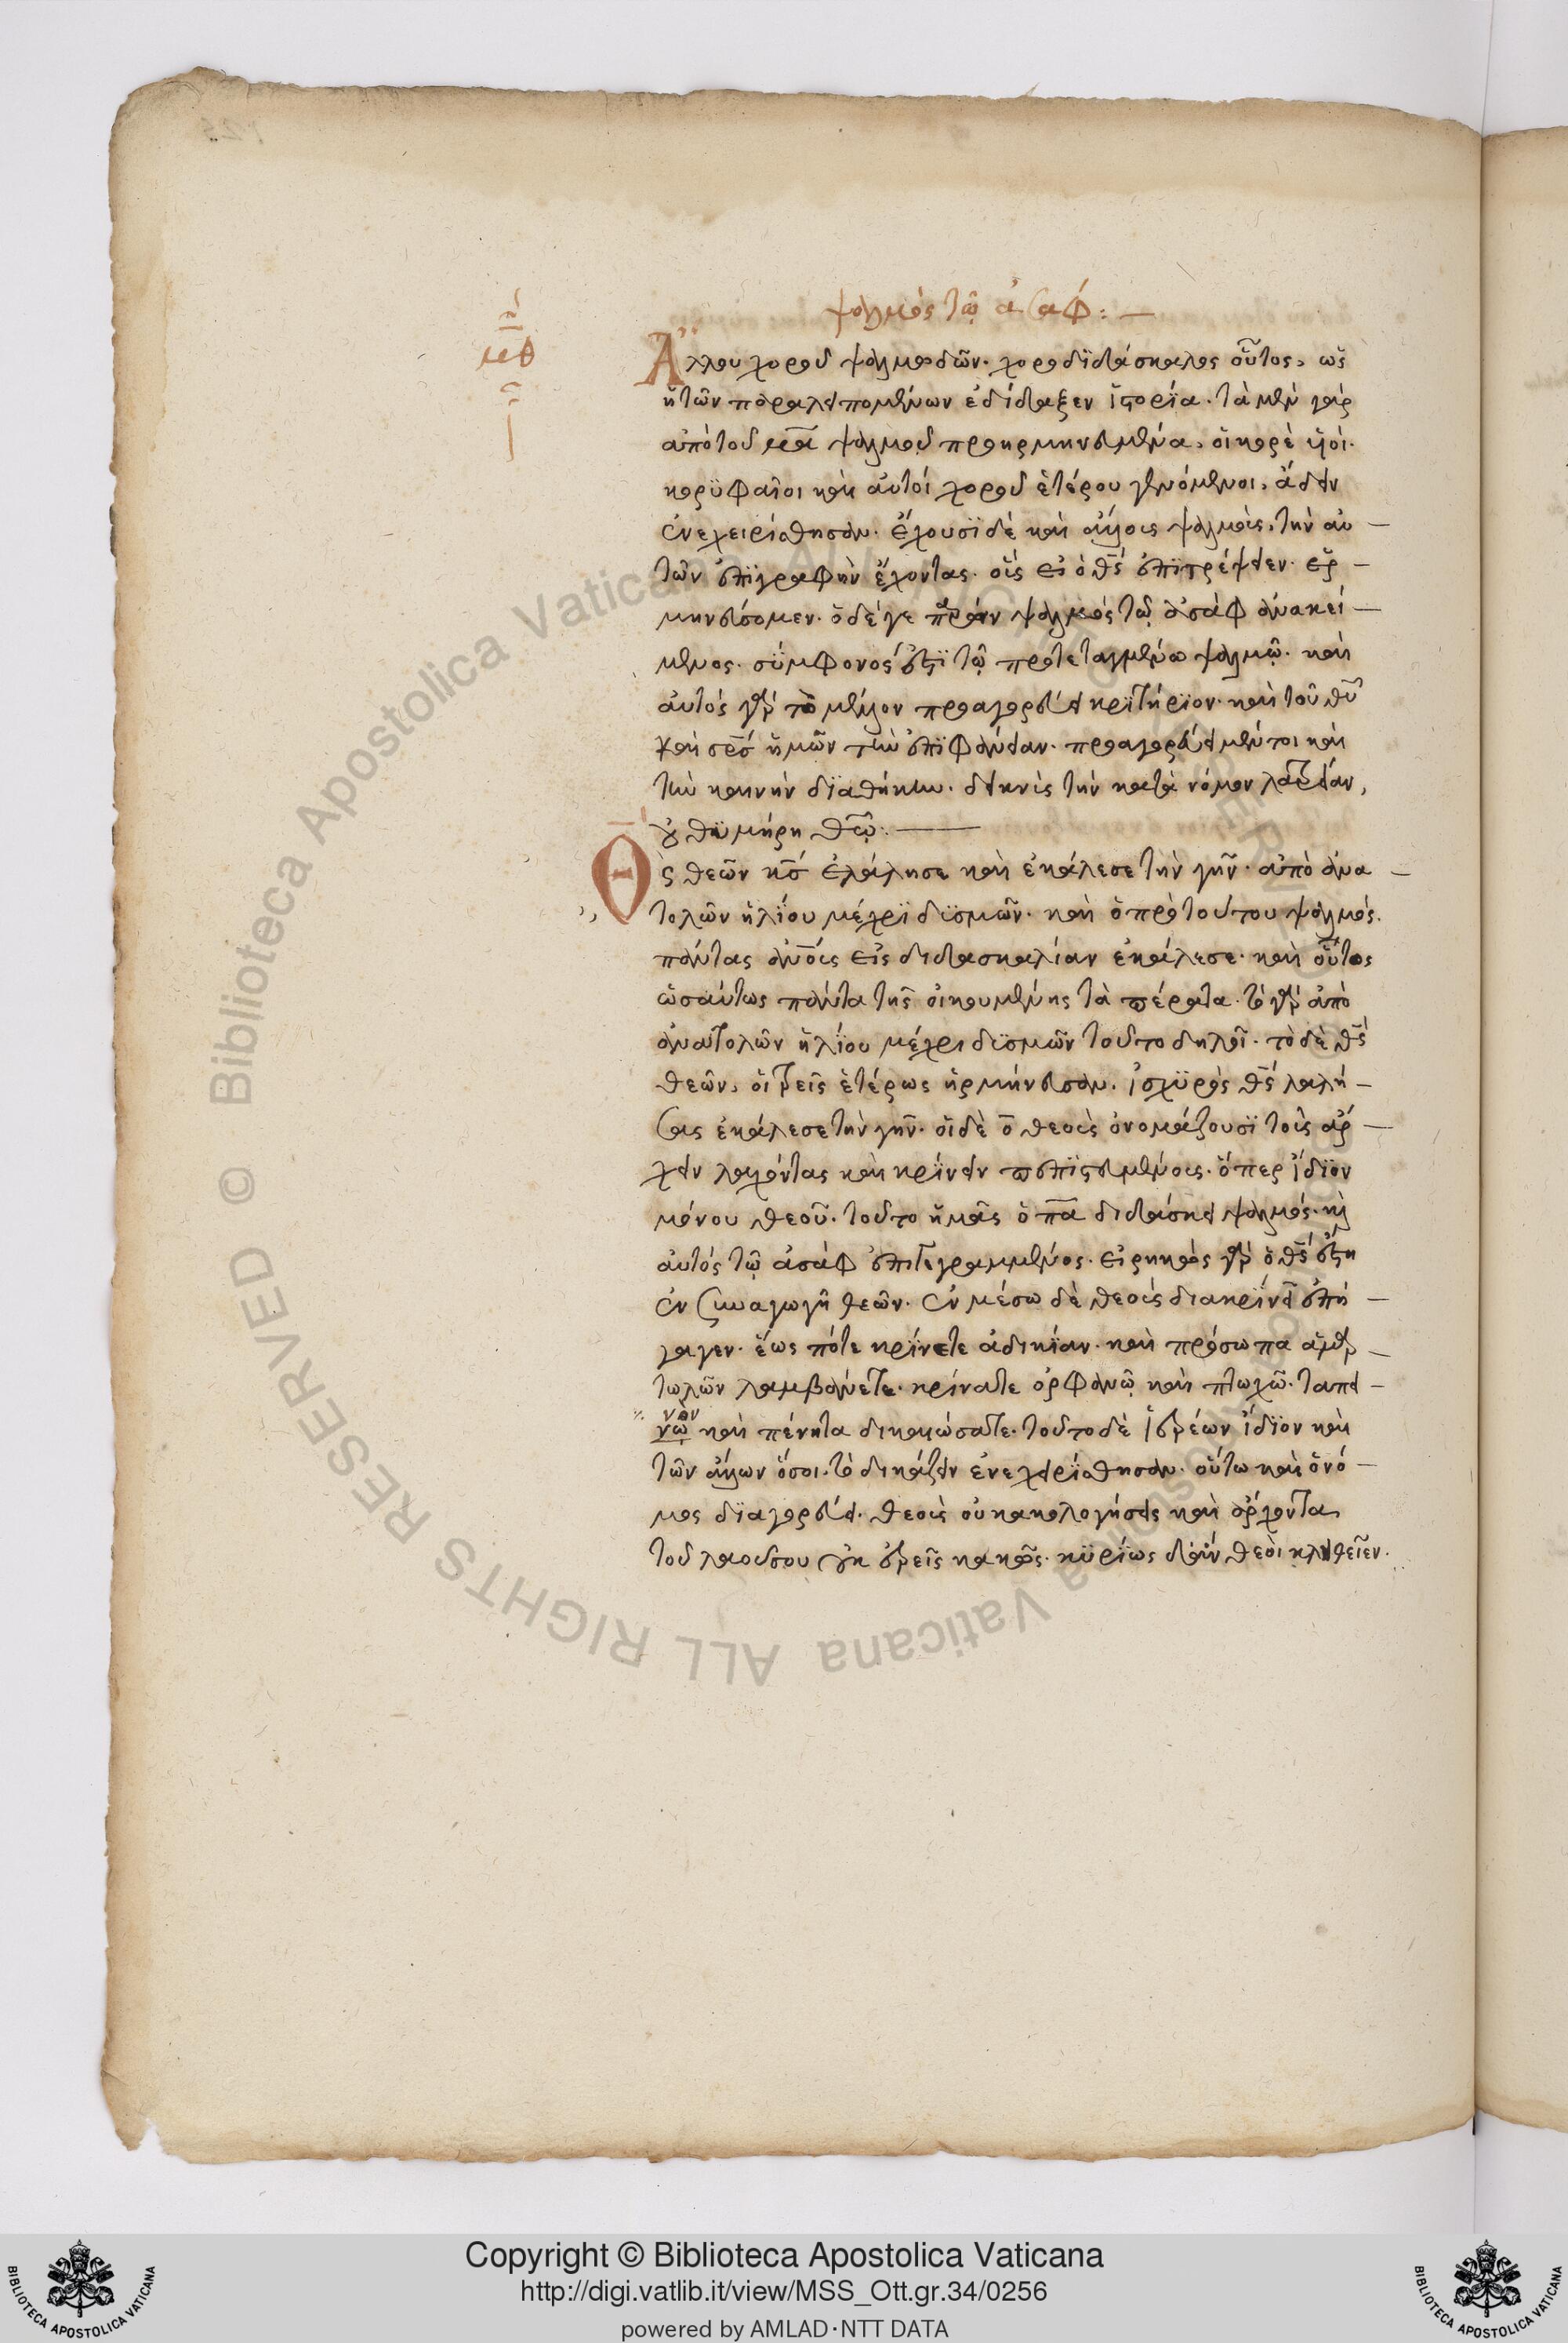 ψαλμὸς τῷ ἀσάφ : —
μθ
Ἄλλου χοροῦ ψαλμωδῶν. χοροδϊδάσκαλος οὗτος, ὡς
ἡ τῶν παραλειπομένων ἐδίδαξεν ἱστορία. τὰ μὲν γὰρ
ἀπὸ τοῦ μα ψαλμοῦ προηρμηνευμένα, οἱ κορὲ υἱοί.
κορϋφαῖοι καὶ αὐτοί χοροῦ ἑτέρου γενόμενοι, ἄδειν
ἐνεχειρίσθησαν. ἔχουσϊ δὲ καὶ ἄλλους ψαλμοὺς, τὴν αὐ –
τῶν ἐπϊγραφὴν ἔχοντας. οὓς εἰ ὁ θς ἐπϊτρέψειεν. ἑρ –
μηνεύσομεν. ὁ δέ γε παρὼν ψαλμὸς τῷ ἀσὰφ ἀνακεί –
μενος. σϋμφονός ἐστϊ τῷ προτεταγμένω ψαλμῷ. καὶ
αὐτὸς γὰρ τὸ μέλλον προαγορεύει κρϊτήρϊον. καὶ τοῦ θυ
καὶ σρς ἡμῶν τὴν ἐπϊφάνειαν. προαγορεύει μέντοι καὶ
τὴν καινὴν δϊαθήκην. δεικνὺς τὴν κατὰ νόμον λατρείαν,
οὐ θϋμήρη θεῷ. —
Θς θεῶν κς ἐλάλησε καὶ ἐκάλεσε τὴν γῆν. ἀπὸ ἀνα –
τολῶν ἡλΐου μέχρϊ δϋσμῶν. καὶ ὁ πρὸ τούτου ψαλμός.
πάντας ἀνους εἰς διδασκαλίαν ἐκάλεσε. καὶ οὗτος
ὡσαύτως πάντα τῆς οἰκουμένης τὰ πέρατα. τὸ γὰρ ἀπὸ
ἀνατολῶν ἡλΐου μέχρι δϋσμῶν τοῦτο δηλοῖ. τὸ δὲ θς
θεῶν, οἱ τρεῖς ἑτέρως ἡρμήνευσαν. ἰσχϋρὸς θς λαλή –
σας ἐκάλεσε τὴν γῆν. οἱ δὲ ο θεοὺς ὀνομάζουσϊ τοὺς ἄρ –
χειν λαχόντας καὶ κρίνειν πεπϊστευμένους. ὅπερ ἴδϊον
μόνου θεοῦ. τοῦτο ἡμᾶς ὁ πα διδάσκει ψαλμός. καὶ
αὐτὸς τῷ ἀσὰφ ἐπιγεγραμμένος. εἰρηκὼς γὰρ ὁ θς ἔστη
ἐν συναγωγῆ θεῶν. ἐν μέσω δὲ θεοὺς διακρϊνεῖ ἐπή –
γαγεν. ἕως πότε κρΐνετε ἀδικϊαν. καὶ πρόσωπα ἁμαρ –
τωλῶν λαμβάνετε. κρίνατε ὀρφανῷ καὶ πτωχῷ. ταπει –
νὸν
νῷ καὶ πένητα δικαιώσατε. τοῦτο δὲ ἱερέων ἴδϊον καὶ
τῶν ἄλλων ὅσοι τὸ δικάζειν ἐνεχειρΐσθησαν. οὕτω καὶ ὁ νό –
μος δϊαγορεύει. θεοὺς οὐ κακολογήσεις καὶ ἄρχοντα
τοῦ λαοῦ σου οὐκ ἐρεῖς κακῶς. κϋρΐως δ' ἂν θεοὶ κληθεῖεν.
Copyright © Biblioteca Apostolica Vaticana
http://digi.vatlib.it/view/MSS_Ott.gr.34/0256
powered by AMLAD·NTT DATA
Biblioteca Apostolica Vaticana ALL RIGHTS RESERVED ©
BIBLIOTECA APOSTOLICA VATICANA
BIBLIOTECA APOSTOLICA VATICANA